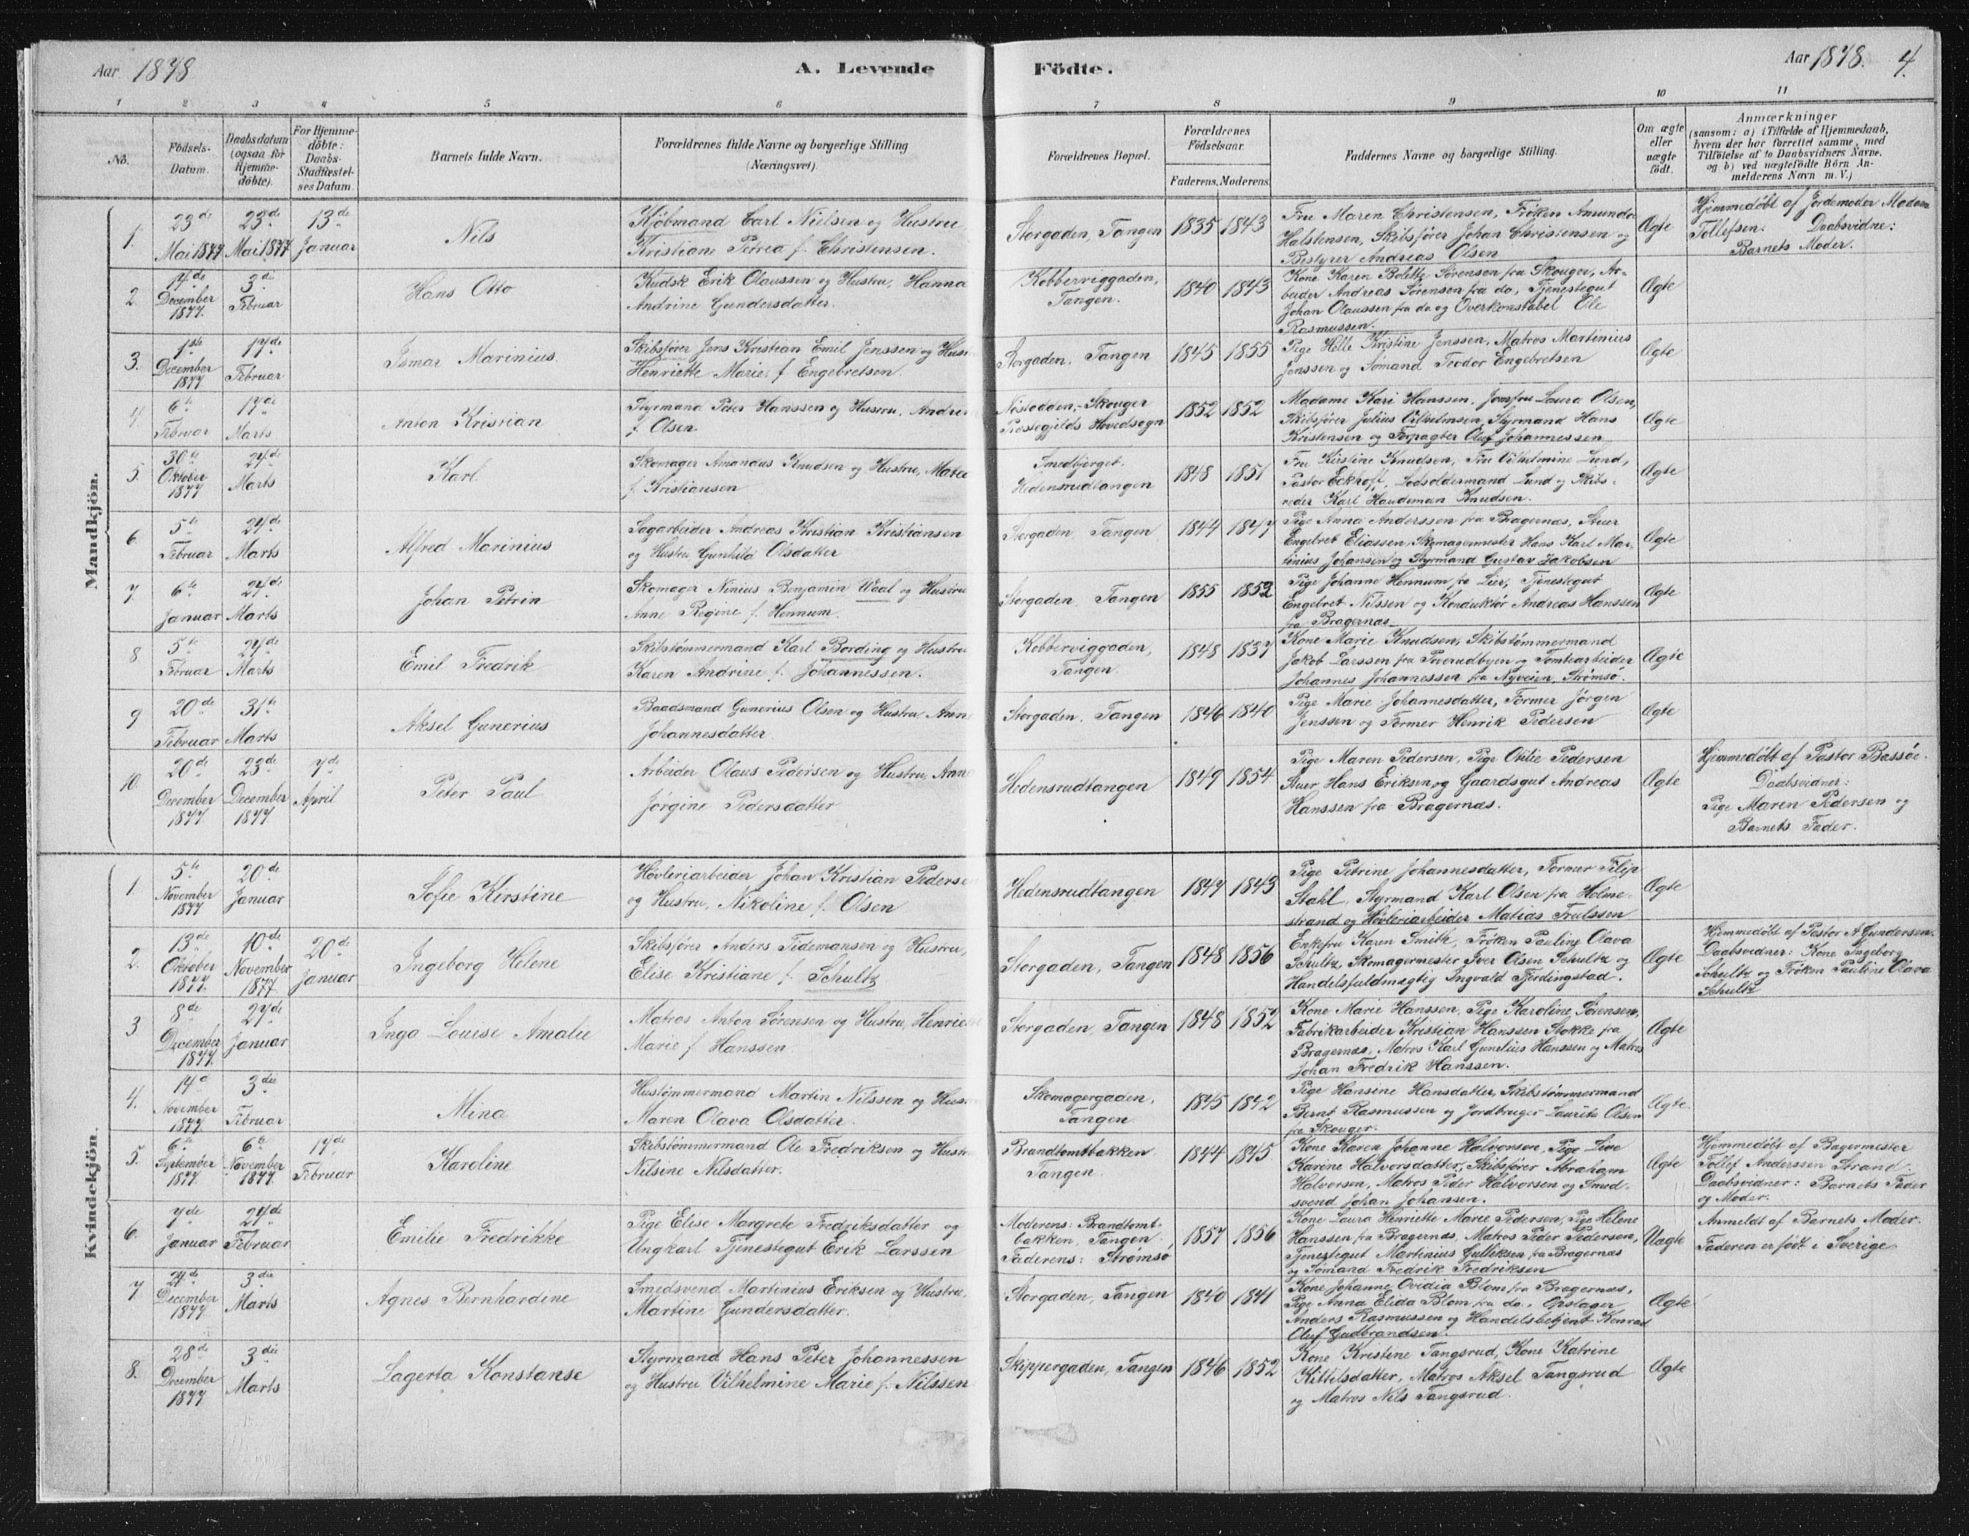 Aar 1878
A. Levende Födte.
Aar 1878. 4.
1 2 3 4 5 6 7 8 9 10 11
No.
Födsels-
Datum.
Daabsdatum
(ogsaa for
Hjemme-
döbte).
For Hjemme-
döbte:
Daabs-
Stadfæstel-
ses Datum.
Barnets fulde Navn.
Forældrenes fulde Navne og borgerlige Stilling
(Næringsvei).
Forældrenes Bopæl.
Forældrenes
Födselsaar.
Faderens. Moderens.
Faddernes Navne og borgerlige Stilling.
Om ægte
eller
uægte
födt.
Anmærkninger
(saasom: a) i Tilfælde af Hjemmedaab,
hvem der har forrettet samme, med
Tilföielse af to Daabsvidners Navne,
og b) ved uægtefödte Börn An-
melderens Navn m. V.)
Mandkjön.
1.
23de
Mai 1877
23de
Mai 1877
13de
Januar
Nils
Kjöbmand Carl Nielsen og Hustru
Kristiane Petrea f. Christensen.
Storgaden, Tangen
1835 1843
Fru Maren Christensen, Frøken Amunda
Halstensen, Skibsfører Johan Christensen og
Bestyrer Andreas Olsen
Ægte
Hjemmedøbt af Jordemoder Madam
Tollefsen. Daabsvidne:
Barnets Moder.
2.
17de
December
1877.
3de
Februar
Hans Otto
Kudsk Erik Olaussen og Hustru, Hanna
Andrine Gundersdatter.
Kobberviggaden,
Tangen.
1840 1843
Kone Karen Bolette Sørensen fra Skouger, Ar-
beider Andreas Sørensen fra do, Tjenestegut
Johan Olaussen fra do og Overkonstabel Ole
Rasmussen.
Ægte
3.
1ste
December
1877
17de
Februar
Ismar Marinius.
Skibsfører Jens Kristian Emil Jenssen og
Henriette Marie f. Engebretsen.
Storgaden. Tangen
1845 1855
Pige Helle Kristine Jenssen, Matros Martinius
Jenssen og Sømand Teodor Engebretsen
Ægte
4
6te
Februar
17de
Marts
Anton Kristian
Styrmand Peter Hanssen og Hustru,
f. Olsen.
Nøstodden, Skouger
Præstegjelds Hovedsogn
1852 1852
Madame Kari Hanssen, Jomfru Laura Olsen,
Skibsfører Julius Vilhelmsen, Styrmand Hans
Kristensen og Forpagter Oluf Johannessen
Ægte
5.
30te
Oktober
1877
24de
Marts
Karl
Skomager Amandus Knudsen og Hustru, Maren
f. Kristiansen
Smedbjerget.
Hedensrudtangen
1848 1851
Fru Kirstine Knudsen, Fru Vilhelmine Lund,
Pastor Eckhoff, Lodsoldermand Lund og Skibs-
reder Karl Haudeman Knudsen.
Ægte
6
5te
Februar
24de
Marts
Alfred Marinius
Sagarbeider Andreas Kristian Kristiansen
og Hustru Gunhild Olsdatter
Storgaden, Tangen
1844 1847
Pige Anna Anderssen fra Bragernæs, Stuer
Engebret Eliassen, Skomagermester Hans Karl Mar-
tinius Johansen og Styrmand Gustav Jakobsen
Ægte
7.
6te
Januar
24de
Marts
Johan Petrin
Skomager Ninius Benjamin Waal og Hustru
Anne Regine f. Hennum.
Storgaden, Tangen
1855 1852
Pige Johanne Hennum fra Lier, Tjenestegut
Engebret Nilssen og Konduktør Andreas Hanssen
fra Bragernæs.
Ægte
8
5te
Februar
24de
Marts
Emil Fredrik
Skibstømmermand Karl Bording og Hustru
Karen Andrine f. Johannessen.
Kobberviggaden,
Tangen.
1848 1837
Kone Marie Knudsen, Skibstømmermand
Jakob Larssen fra og Tomtearbeider
Johannes Johannessen fra Nyveien, Strømsø.
Ægte
9
20de
Februar
31te
Marts
Aksel Gunerius
Baadsmand Gunerius Olsen og Hustru Anne
Johannesdatter.
Storgaden. Tangen
1846 1840
Pige Marie Johannesdatter, Former Jörgen
Jenssen og Former Henrik Pedersen
Ægte
10.
20de
December
1877.
23de
December
1877
7de
April
Peter Paul
Arbeider Olaus Pedersen og Hustru, Anne
Jørgine Pedersdatter
Hedensrudtangen
1849 1854
Pige Maren Pedersen, Pige Otilie Pedersen
Stuer Hans Eriksen og Gaardsgut Andreas
Hanssen fra Bragernæs.
Ægte
Hjemmedøbt af Pastor Bassøe.
Daabsvidner:
Pige Maren Pedersen og
Barnets Fader.
Kvindekjön.
1.
5te
November
1877
20de
Januar
Sofie Kirstine
Høvleriarbeider Johan Kristian Pedersen
og Hustru, Nikoline f. Olsen
Hedensrudtangen
1847 1843
Pige Petrine Johannesdatter, Former Filip
Stahl, Styrmand Karl Olsen fra Holme-
strand og Høvleriarbeider Matias Trulssen
Ægte
2.
13de
Oktober
1877.
10de
November
1877
20de
Januar
Ingeborg Helene
Skibsfører Anders Tidemansen og Hustru,
Elise Kristiane f. Schultz
Storgaden, Tangen
1848 1856
Enkefru Karen Smith, Frøken Pauline Olava
Schultz, Skomagermester Iver Olsen Schultz og
Handelsfuldmægtig Ingvald Fjerdingstad.
Ægte
Hjemmedøbt af Pastor A. Gundersen.
Daabsvidner: Kone Ingeborg
Schultz og Frøken Pauline Olava
Schultz
3
8de
December
1877.
27de
Januar
Inga Louise Amalie
Matros Anton Sørensen og Hustru, Henriette
Marie f. Hanssen.
Storgaden, Tangen
1848 1852
Kone Marie Hanssen, Pige Karoline Sørensen,
Fabrikarbeider Kristian Hanssen Stokke fra
Bragernæs, Matros Karl Gunelius Hanssen og Matros
Johan Fredrik Hanssen.
Ægte
4.
14de
November
1877
3die
Februar
Mina
Hustømmermand Martin Nilssen og Hustru
Maren Olava Olsdatter.
Skomagergaden,
Tangen
1845 1842
Pige Hansine Hansdatter, Skibstømmermand
Bernt Rasmussen og Jordbruger Laurits Olsen
fra Skouger.
Ægte.
5.
6te
September
1877.
6te
November
1877.
17de
Februar
Karoline
Skibstømmermand Ole Fredriksen og Hustru
Nilsine Nilsdatter.
Brandtomtbakken
Tangen.
1844 1845
Kone Karen Johanne Halvorsen, Pige Lise
Karine Halvorsdatter, Skibsfører Abraham
Halvorsen, Matros Peder Halvorsen og Smed-
svend Johan Johansen.
Ægte
Hjemmedøbt af Bagermester
Tollef Anderssen Strand.
Daabsvidner: Barnets Fader
og Moder.
6.
7de
Januar
24de
Februar
Emilie Fredrikke
Pige Elise Margrete Fredriksdatter og
Ungkarl Tjenestegut Erik Larssen
Moderens: Brandtomt-
bakken, Tangen
Faderens: Strømsø
1857 1856
Kone Laura Henriette Marie Pedersen, Pige Helene
Hanssen fra Bragernæs, Matros Peder Pedersen,
Tjenestegut Martinius Gulliksen fra Bragernæs
og Sømand Fredrik Fredriksen
Uægte
Anmeldt af Barnets Moder.
Faderen er født i Sverige
7
24de
December
1877.
3die
Marts
Agnes Bernhardine
Smedsvend Martinius Eriksen og Hustru,
Martine Gundersdatter.
Storgaden, Tangen
1840 1841
Kone Johanne Ovidia Blom fra Bragernæs,
Pige Anna Elida Blom fra do, Opslager
Anders Rasmussen og Handelsbetjent Konrad
Oluf Gudbrandsen.
Ægte
8.
28de
December
1877
3die
Marts
Lagerta Konstanse
Styrmand Hans Peter Johannessen
og Hustru Vilhelmine Marie f. Nilssen
Skippergaden, Tangen
1846 1852
Kone Kristene Tangsrud, Kone Katrine
Kittilsdatter, Matros Aksel Tangsrud
og Matros Nils Tangsrud.
Ægte